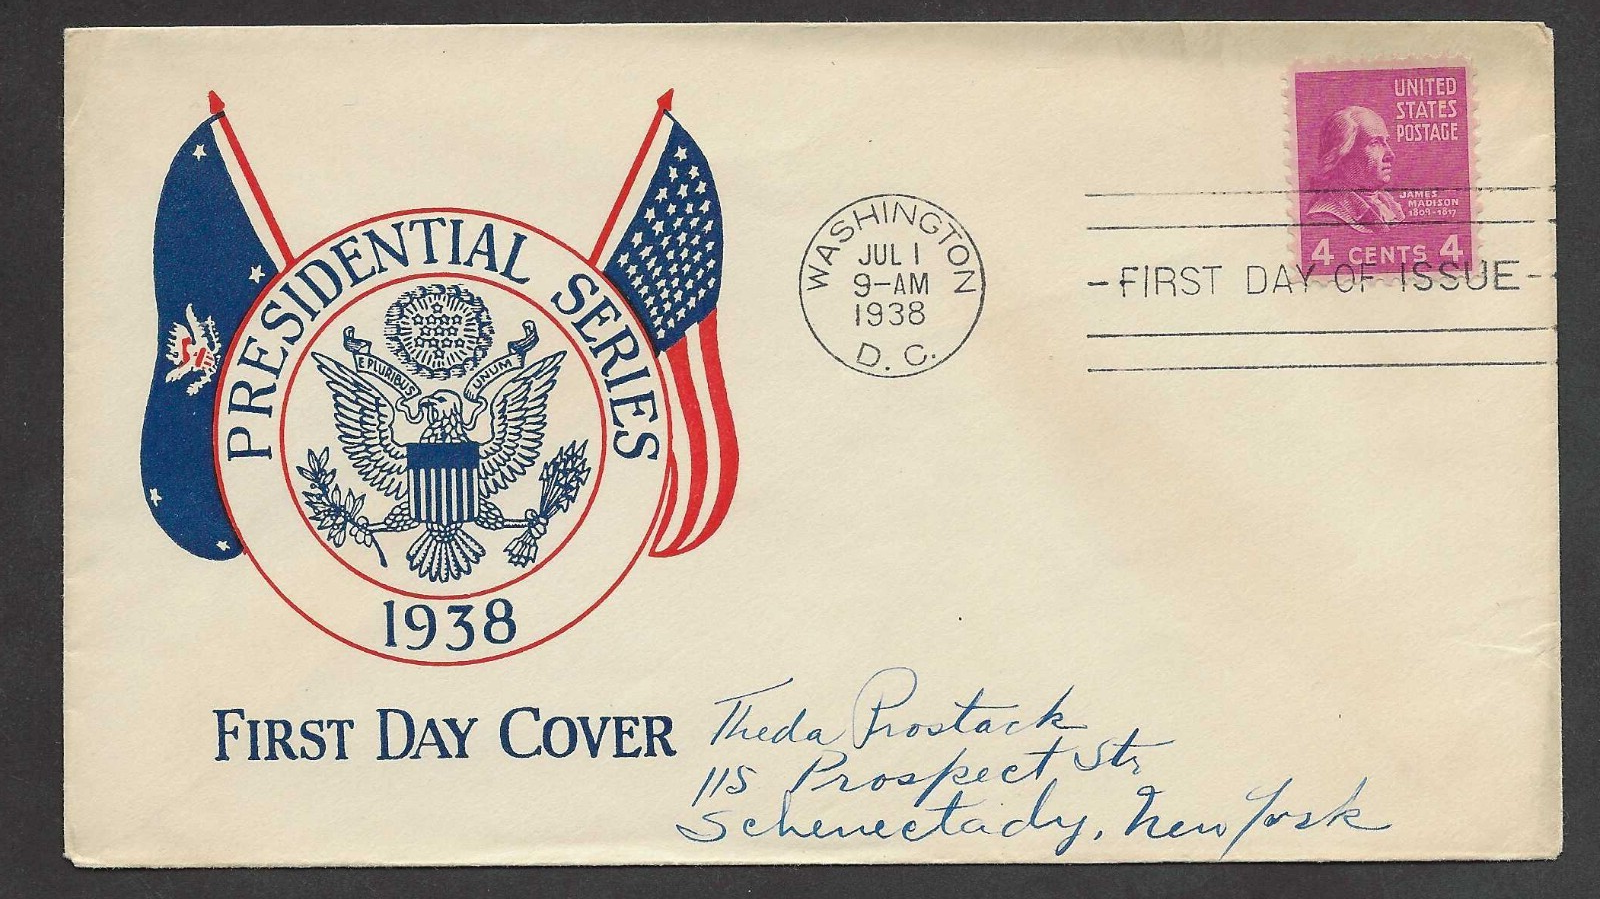 PRESIDENTIAL SERIES
E PLURIBUS UNUM
1938
FIRST DAY COVER
WASHINGTON
JUL 1
9-AM
1938
D. C.
UNITED
STATES
POSTAGE
JAMES
MADISON
1809-1817
4 CENTS 4
-FIRST DAY OF ISSUE-
Theda Prostack
115 Prospect Str
Schenectady, New York